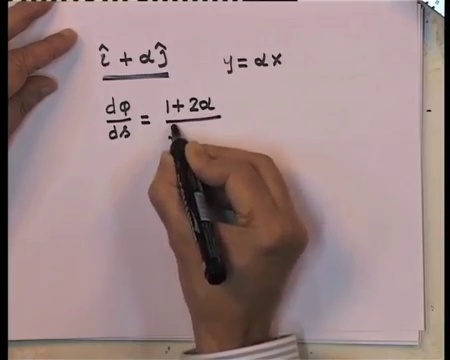 î + αĵ    y = αx
dφ/ds = 1 + 2α